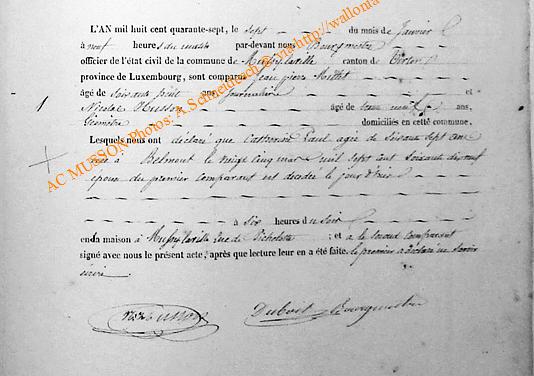 L'AN mil huit cent quarante-sept, le sept du mois de Janvier
à neuf heures du matin par-devant nous Bourgmestre
officier de l'état civil de la commune de Mussylaville canton de Virton
province de Luxembourg, sont comparus Jean pierre
âgé de Soixante huit ans journalier et
1 Nicolas Husson âgé de ans,
Géomètre domiciliés en cette commune.
Lesquels nous ont déclaré que Catherine Paul agée de Soixante sept ans
née à Belmont le vingt cinq mars mil sept cent soixante dix neuf
épouse du premier comparant est décédée le jour d'hier
à six heures du soir
en sa maison à Mussylaville rue de ; et a le second comparant
signé avec nous le présent acte, après que lecture leur en a été faite. le premier a déclaré ne savoir
écrire
Husson Dubois Bourgmestre
AC MUSSON Photos: A. Schneidesch © via http://wallonia